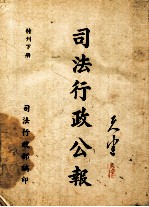 司法行政公報
特刊下册
司法行政部編印